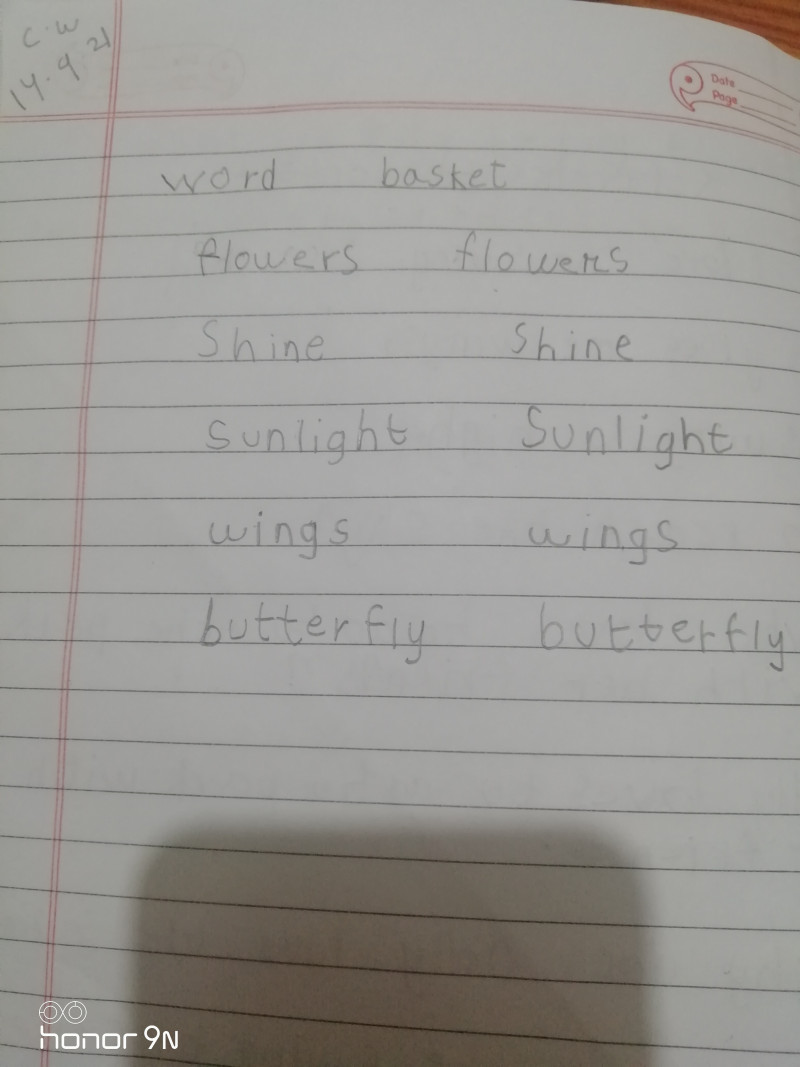 C.W
14.9.21
Date
Page
word basket
flowers flowers
Shine Shine
sunlight Sunlight
wings wings
butterfly butterfly
honor 9N